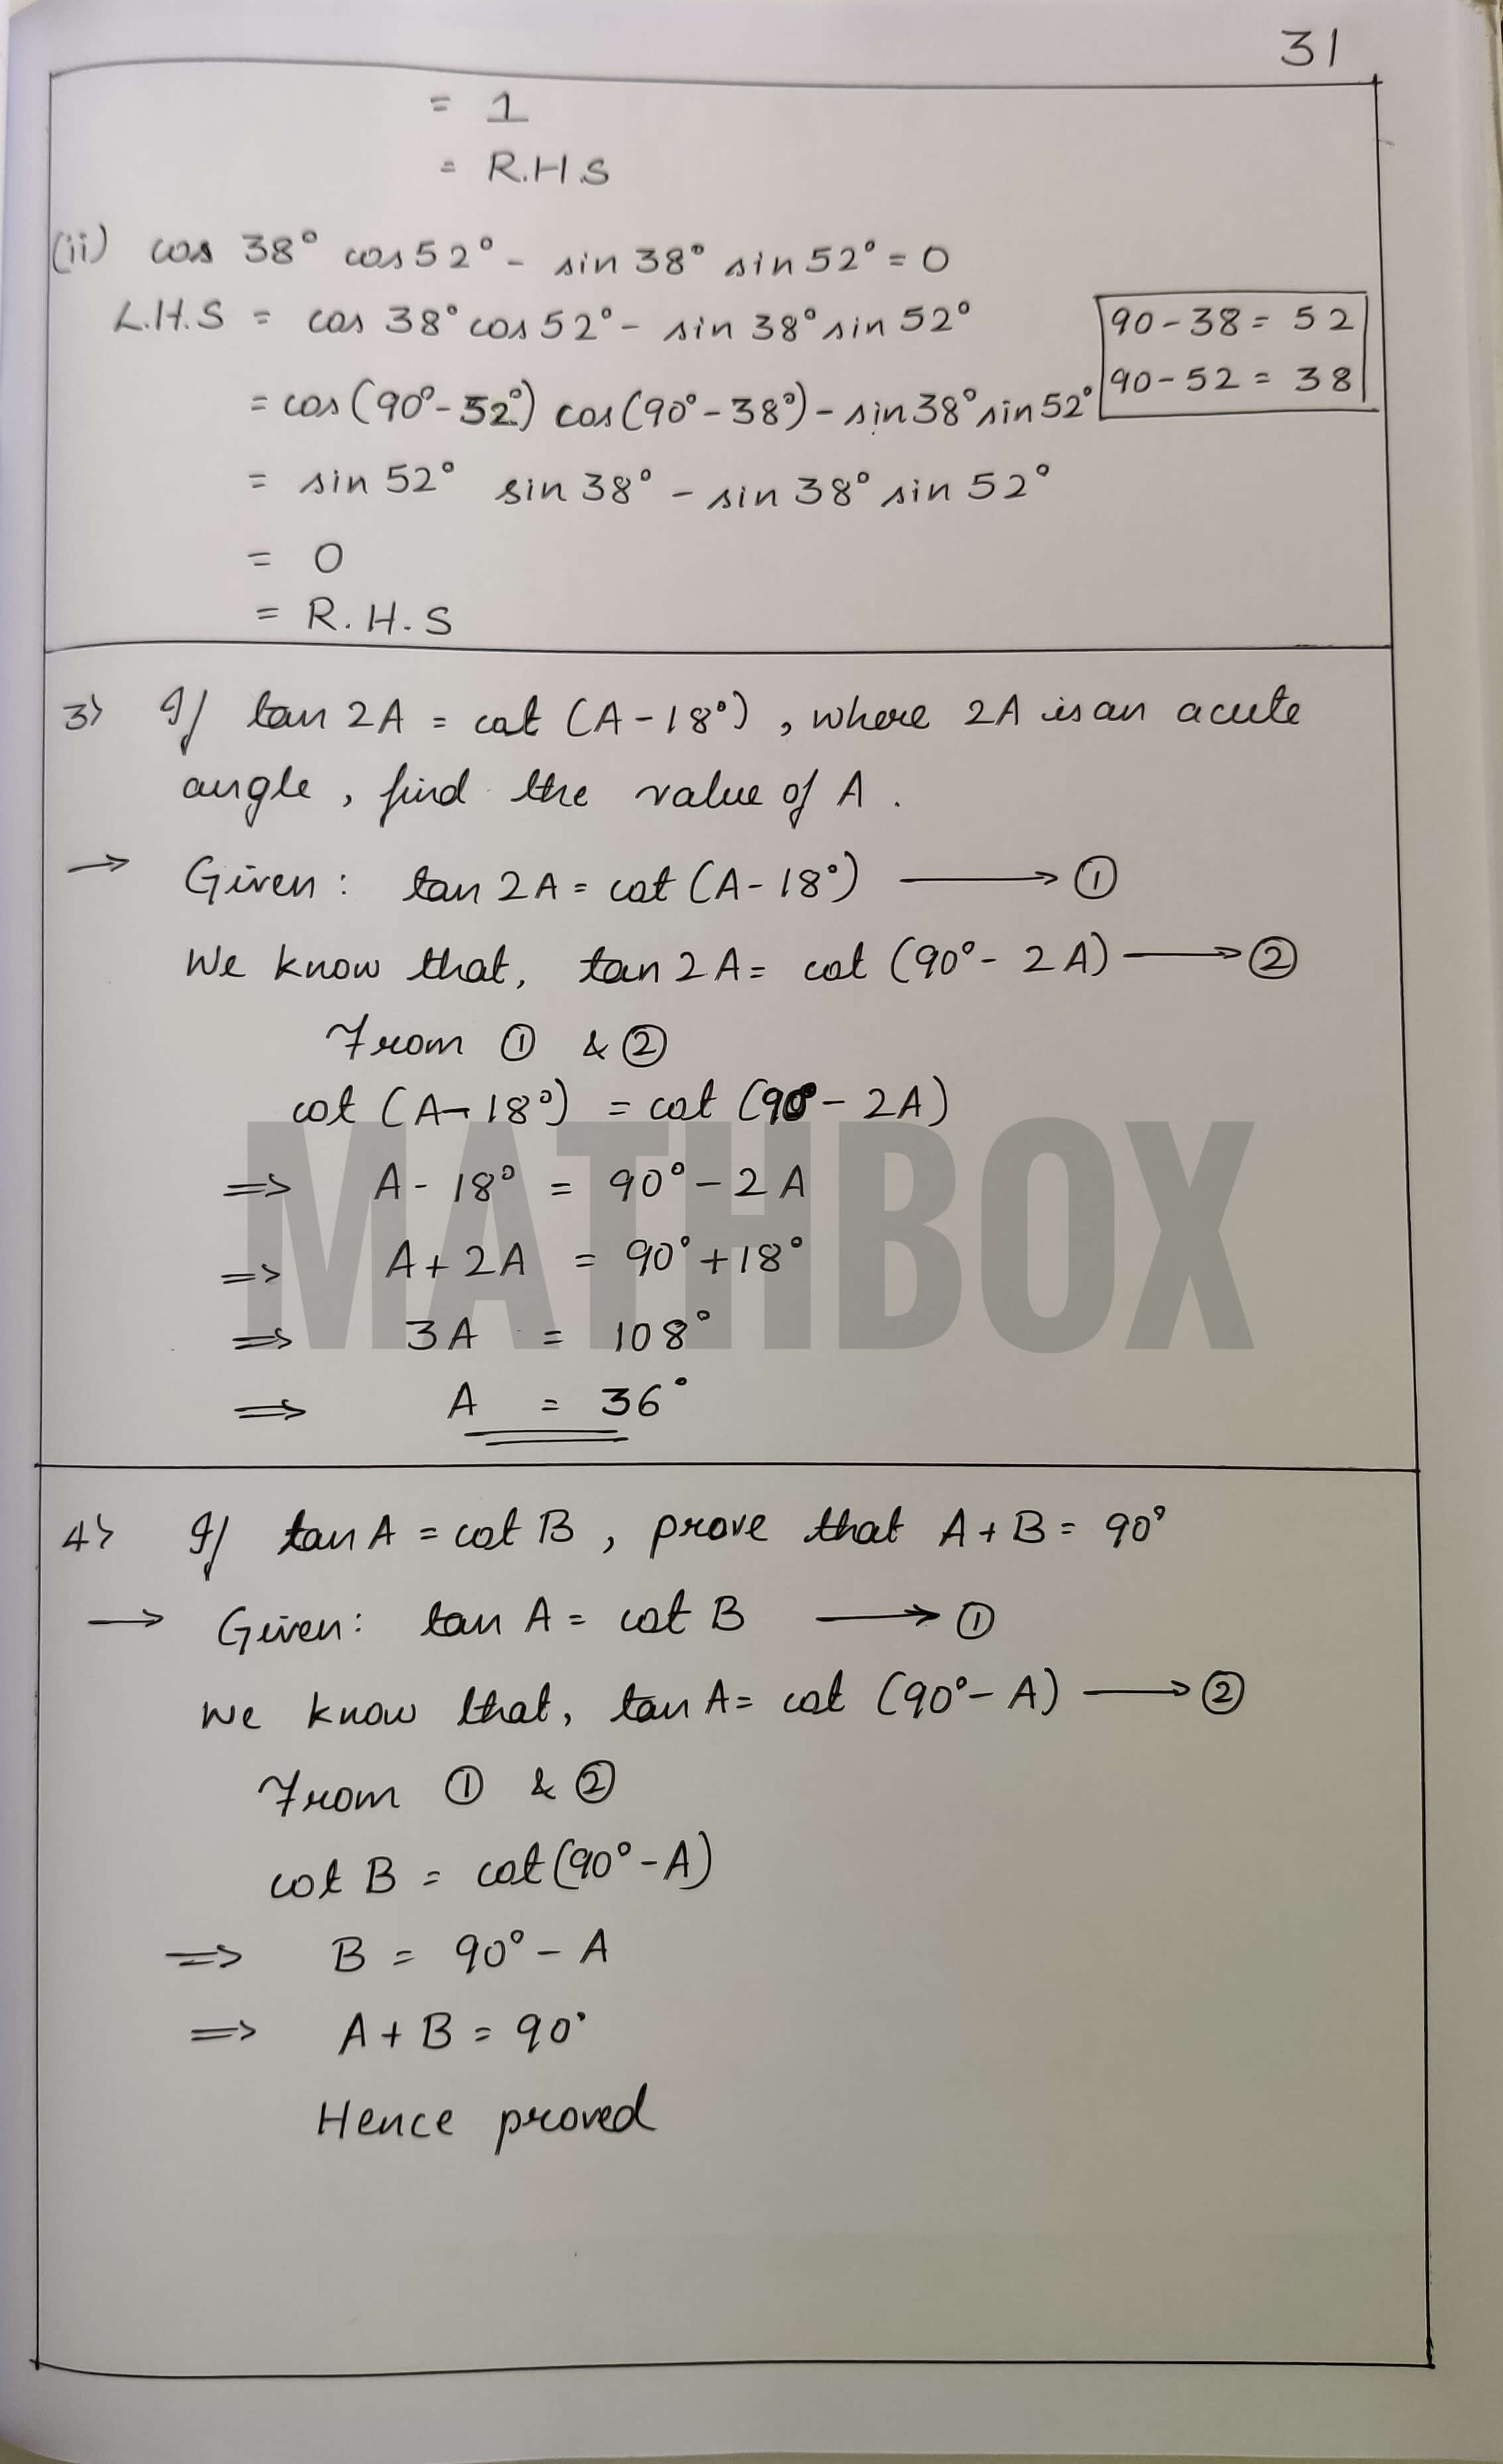 31
= 1
= R.H.S
(ii) cos 38° cos 52° - sin 38° sin 52° = 0
L.H.S = cos 38° cos 52° - sin 38° sin 52°
90 - 38 = 52
90 - 52 = 38
= cos (90° - 52°) cos (90° - 38°) - sin 38° sin 52°
= sin 52° sin 38° - sin 38° sin 52°
= 0
= R.H.S
3> If tan 2A = cot (A - 18°), where 2A is an acute
angle, find the value of A.
→ Given: tan 2A = cot (A - 18°) ⟶ ①
We know that, tan 2A = cot (90° - 2A) ⟶ ②
From ① & ②
cot (A - 18°) = cot (90° - 2A)
MATHBOX
=> A - 18° = 90° - 2A
=> A + 2A = 90° + 18°
=> 3A = 108°
=> A = 36°
4> If tan A = cot B, prove that A + B = 90°
→ Given: tan A = cot B ⟶ ①
We know that, tan A = cot (90° - A) ⟶ ②
From ① & ②
cot B = cot (90° - A)
=> B = 90° - A
=> A + B = 90°
Hence proved